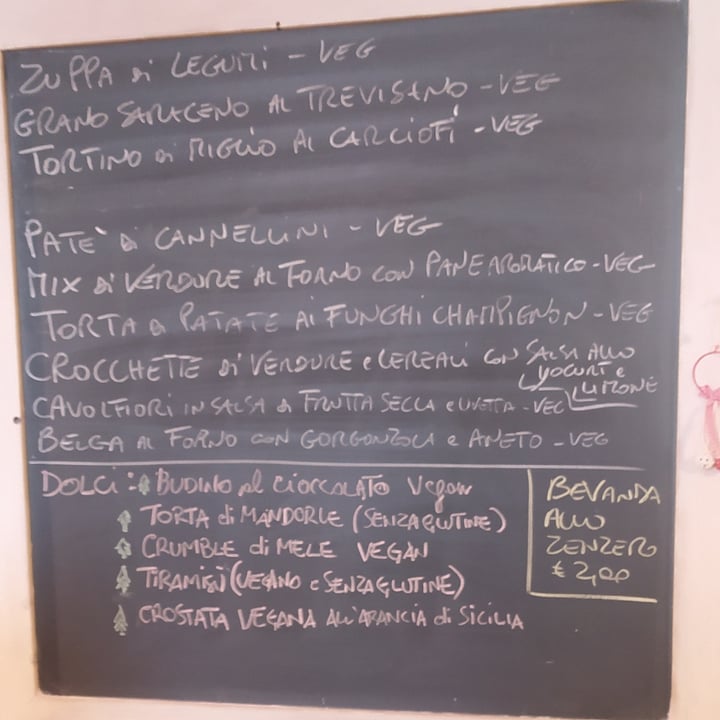 ZUPPA di LEGUMI - VEG
GRANO SARACENO AL TREVISANO - VEG
TORTINO di MIGLIO AI CARCIOFI - VEG
PATE' di CANNELLINI - VEG
MIX di VERDURE AL FORNO CON PANE AROMATICO - VEG
TORTA di PATATE AI FUNGHI CHAMPIGNON - VEG
CROCCHETTE di VERDURE e CEREALI CON SALSA ALLO
YOGURT e
LIMONE
CAVOLFIORI IN SALSA di FRUTTA SECCA e UVETTA - VEG
BELGA AL FORNO CON GORGONZOLA e ANETO - VEG
DOLCI: BUDINO al CIOCCOLATO Vegan
TORTA di MANDORLE (SENZA GLUTINE)
CRUMBLE di MELE VEGAN
TIRAMISÙ (VEGANO e SENZA GLUTINE)
CROSTATA VEGANA All'ARANCIA di SICILIA
BEVANDA
ALLO
ZENZERO
€ 2,00